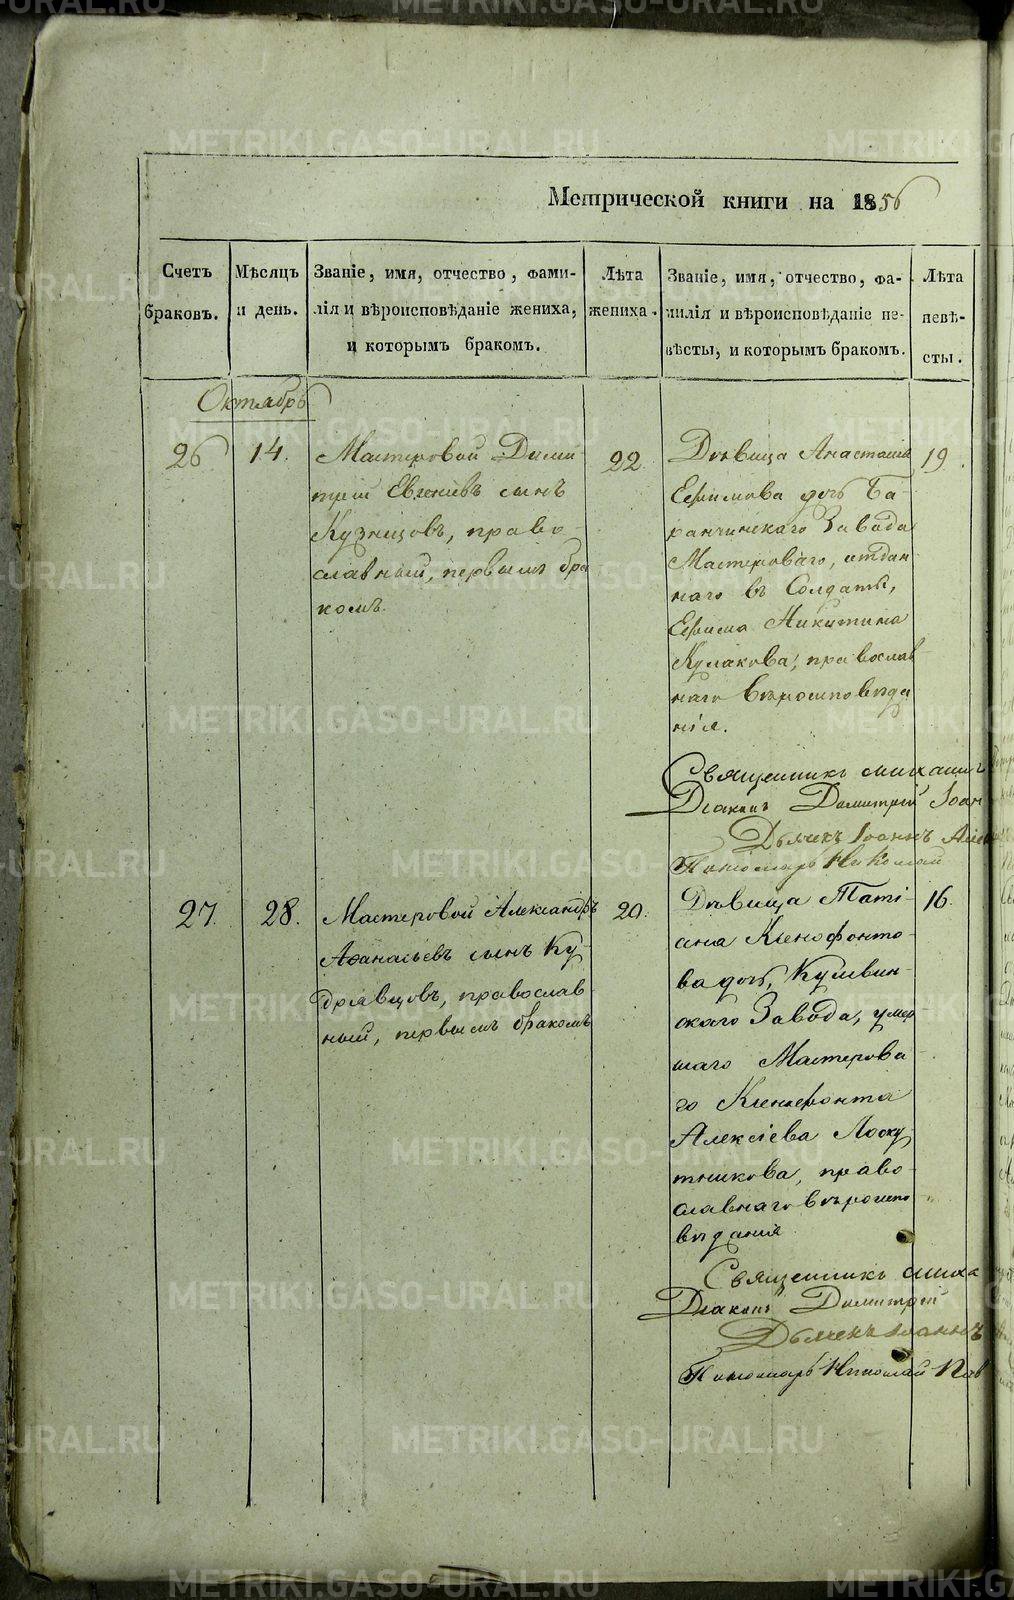 METRIKI.GASO-URAL.RU
Метрической книги на 1856
Счетъ браковъ.
Мѣсяцъ и день.
Званіе, имя, отчество, фами-
лія и вѣроисповѣданіе жениха,
и которымъ бракомъ.
Лѣта жениха.
Званіе, имя, отчество, фа-
милія и вѣроисповѣданіе не-
вѣсты, и которымъ бракомъ.
Лѣта невѣ-
сты.
Октябрь
26
14.
Мастеровой Дими-
трій Евгеніевъ сынъ
Кузнецовъ, право-
славный, первымъ бра
комъ.
22
Дѣвица Анастасія
Ефимова дочь Ба-
ранчинскаго Завода
Мастероваго, отдан
наго въ Солдаты,
Ефима Никитина
Кулакова, православ
наго вѣроисповѣда
нія.
19
Священникъ Михаилъ
Діаконъ Димитрій Іоан
Дьячекъ Іоаннъ Але
Пономарь Николай
27.
28.
Мастеровой Александръ
Аѳанасьевъ сынъ Ку-
дрявцовъ, православ-
ный, первымъ бракомъ
20.
Дѣвица Таті-
ана Ксенофонто-
ва дочь, Кушвин-
скаго Завода, умер
шаго Мастерова
го Ксенофонта
Алексіева Лоску-
тникова, право-
славнаго вѣроиспо
вѣданія
16.
Священникъ Миха
Діаконъ Димитрій
Дьячекъ Іоаннъ
Пономарь Николай Пав